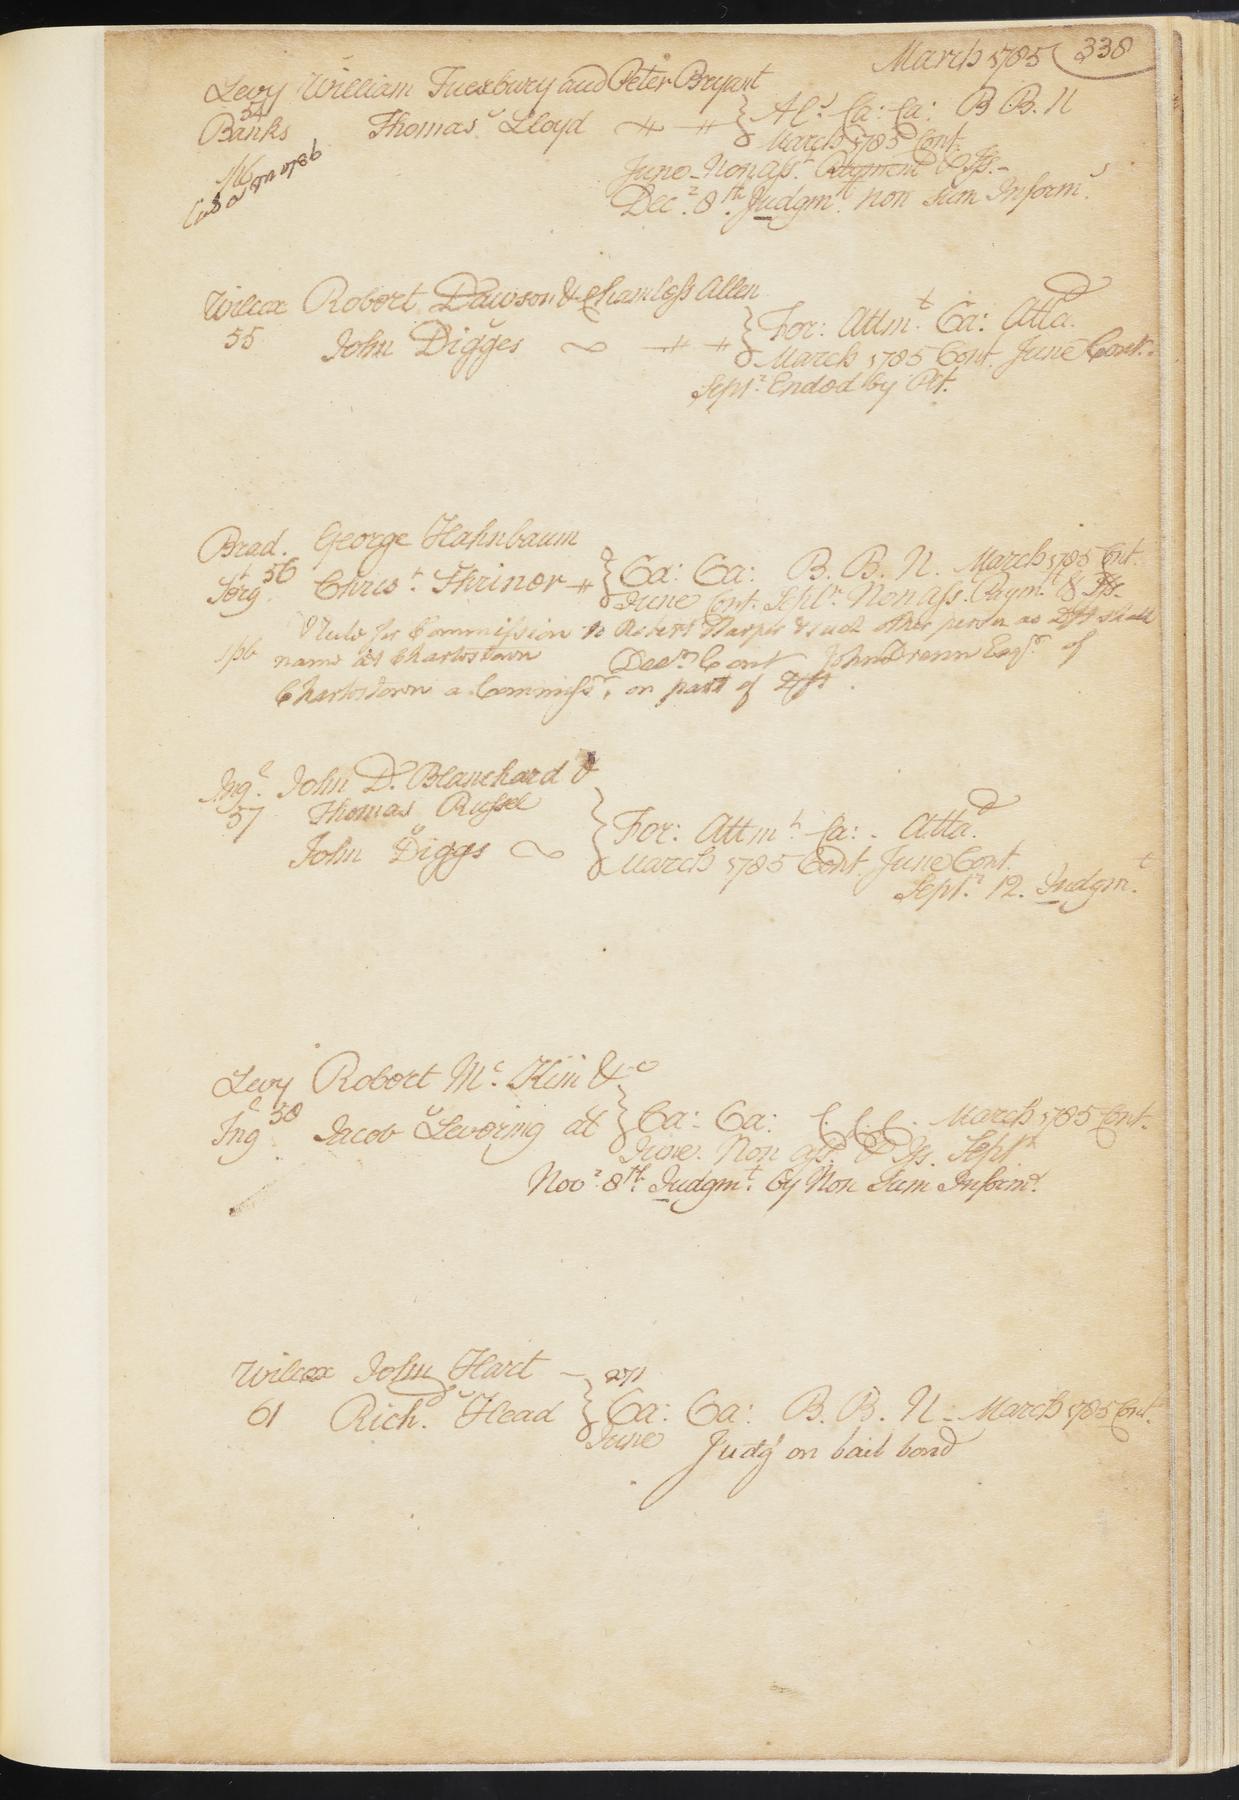 March 1785 338
Levy William Tuexbury and Peter Bryant
54
Banks Thomas Lloyd Al.s Ca: Ca: B B. N
March 1785 Cont.
June Non Ass.t Payment & Iss.
Dec.r 8th Judgm.t non sum Inform.s
Wilcox Robert Dawson & Chamless Allen
55 John Digges For: Attm.t Ca: Atta.d
March 1785 Cont. June Cont.
Sept.r Ended by Plt.
Brad. George Hahnbaum
56 Chris.t Shriner Ca: Ca: B. B. N. March 1785 Cont.
June Cont. Sept.r Non Ass. Paym.t & Iss.
Rule for Commission to Robert Harper & such other person as Dft shall
name at Charlestown Decr. Cont John Drenn Esqr. of
Charlestown a Commissr. on part of Dft.
Ing.e John D. Blanchard &
57 Thomas Russel
John Diggs For: Attm.t Ca: Atta.d
March 1785 Cont. June Cont.
Sept.r 12. Judgm.t
Levy Robert Mc. Kim & Co
Ing.e 58 Jacob Levering at Ca: Ca: C. C. C. March 1785 Cont.
June. Non ass. & Iss. Sept.r
Nov.r 8th Judgm.t by Non Sum Inform.s
Wilcox John Hart 271
61 Rich.d Head Ca: Ca: B. B. N. March 1785 Cont.
June Judg on bail bond